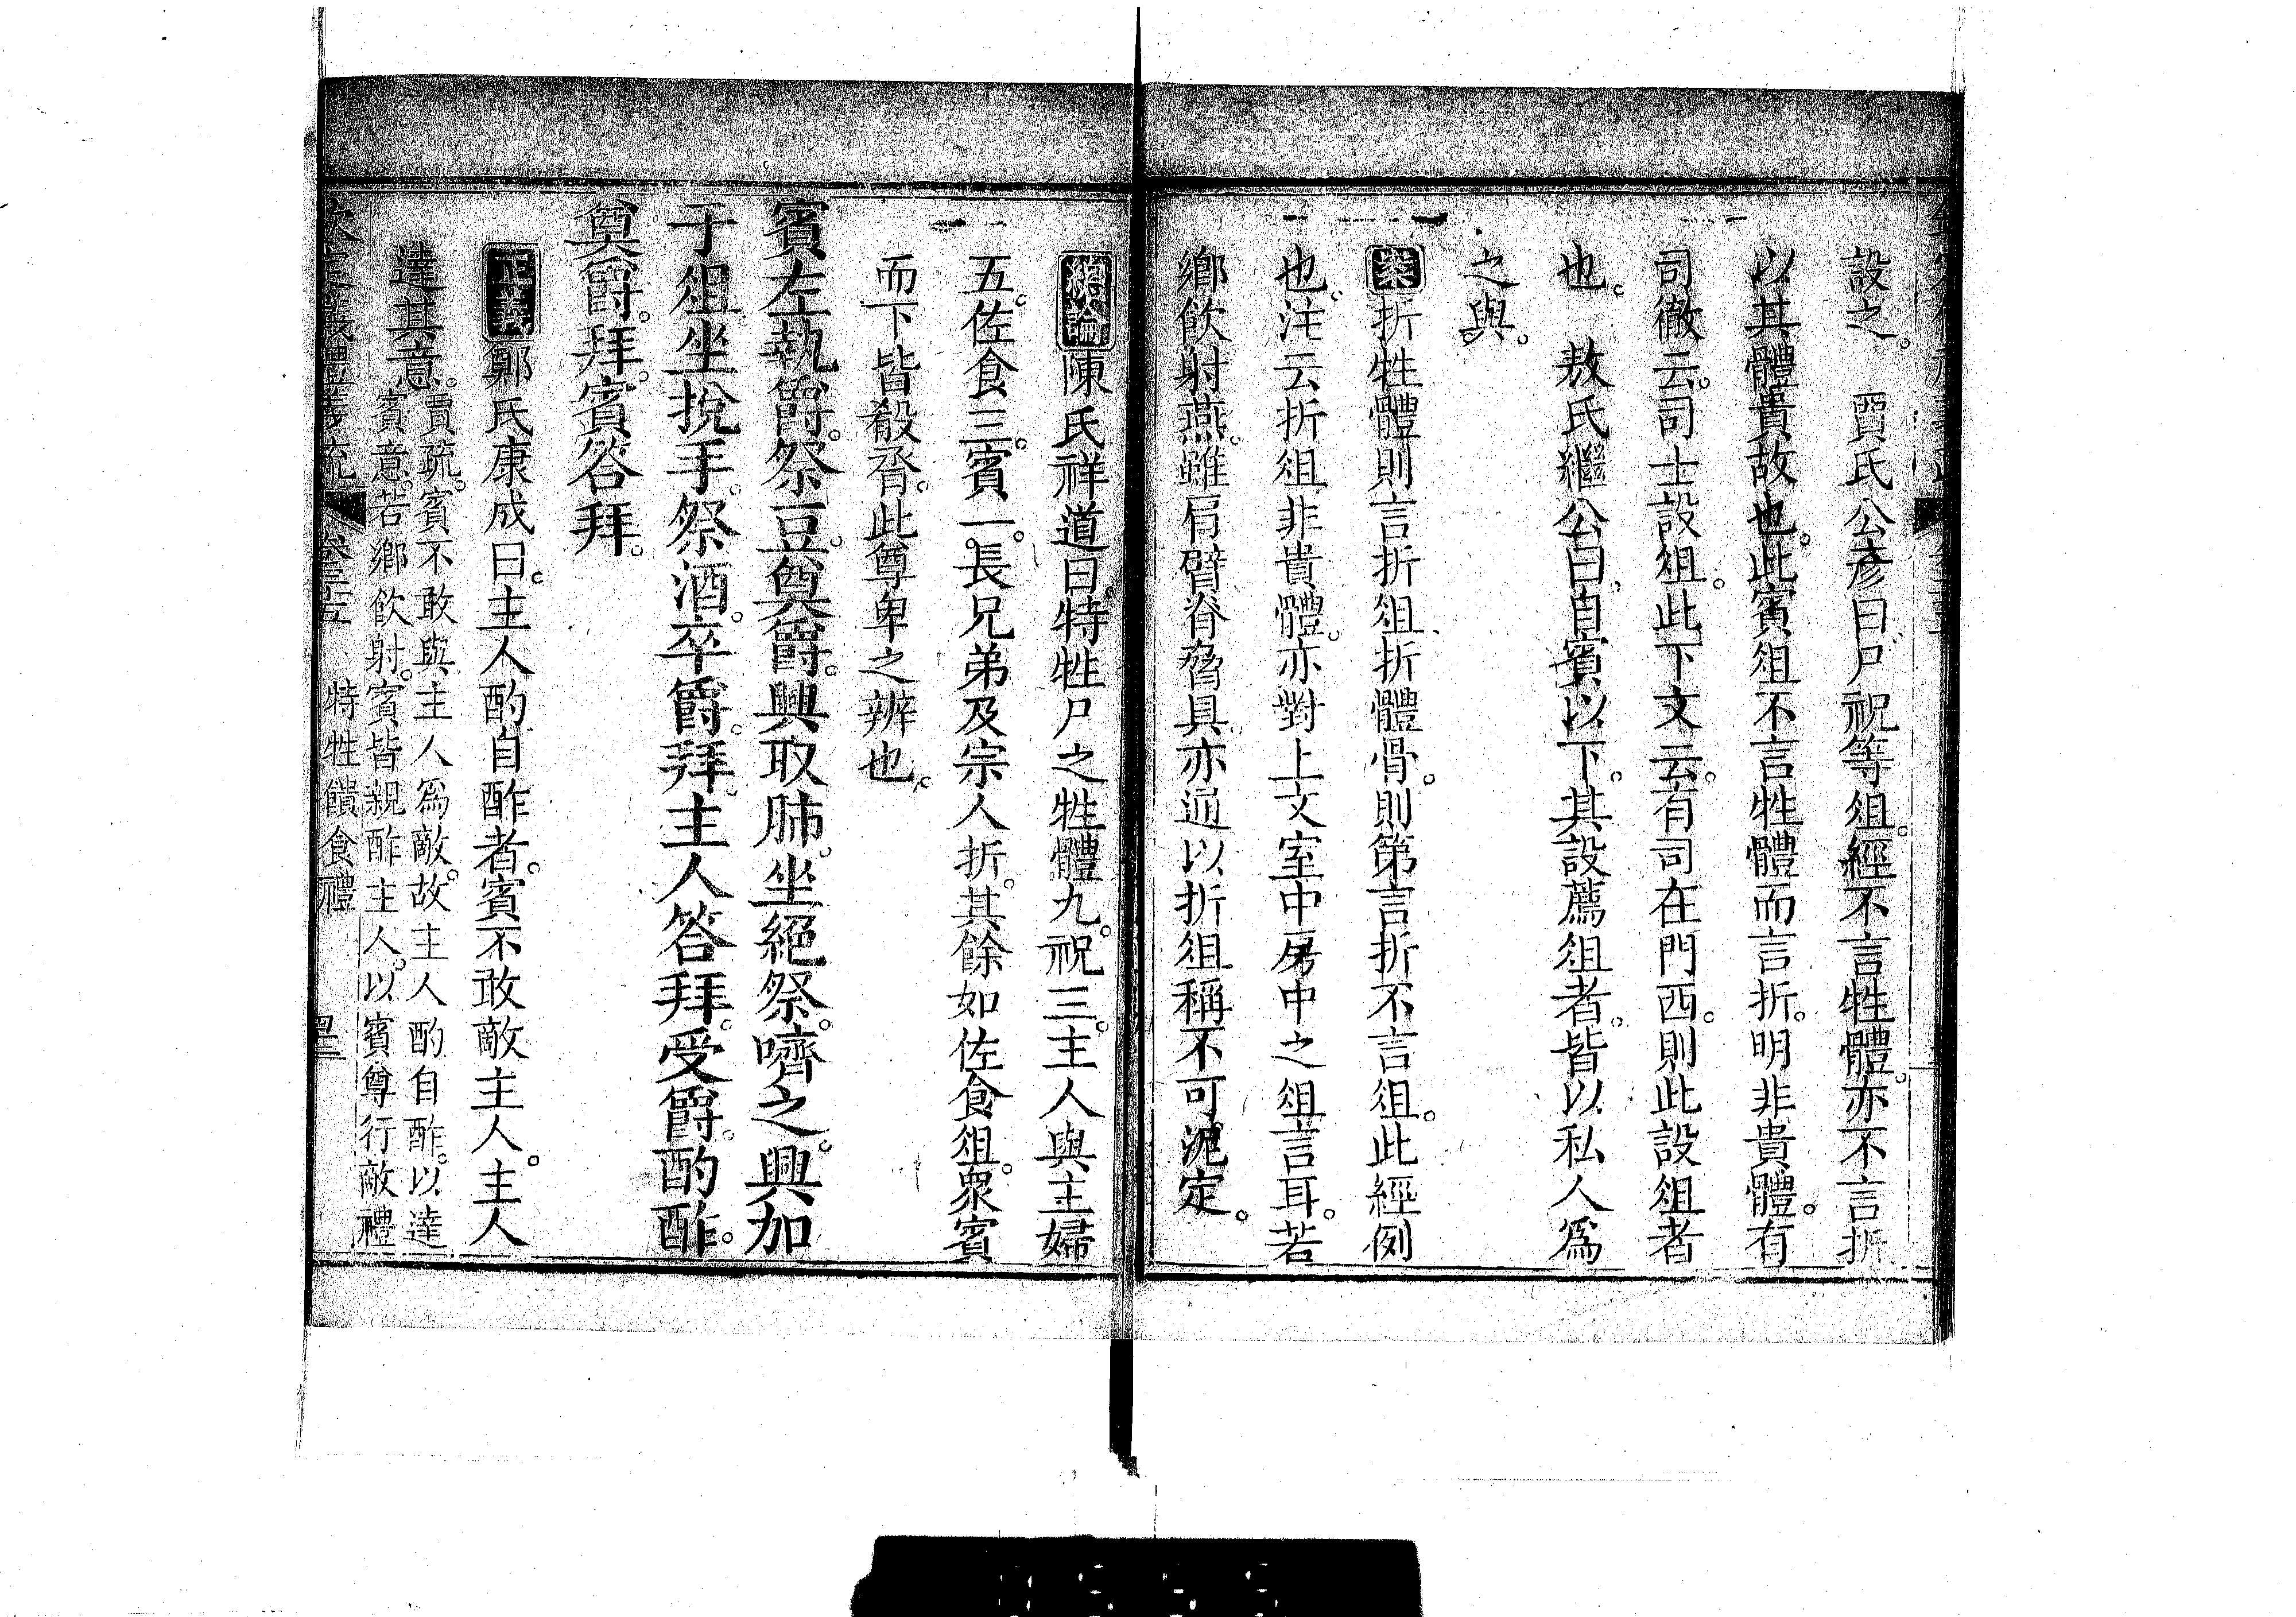 設之。　賈氏公彥曰。尸祝等俎。經不言牲體。亦不言折
以其體貴故也。此賓俎不言牲體而言折。明非貴體。有
司徹云。司士設俎。此下文云。有司在門西。則此設俎者
也。　敖氏繼公曰。自賓以下。其設薦俎者。皆以私人爲
之與。
案折牲體則言折俎。折體骨。則第言折不言俎。此經例
也。注云折俎非貴體。亦對上文室中房中之俎言耳。若
鄉飲射燕。雖肩臂脊脅具。亦通以折俎稱。不可泥定。
總論陳氏祥道曰。特牲尸之牲體九。祝三。主人與主婦
五。佐食三。賓一。長兄弟及宗人折。其餘如佐食俎。眾賓
而下皆殽脀。此尊卑之辨也。
賓左執爵。祭豆。奠爵。興取肺。坐絕祭。嚌之。興加
于俎。坐挩手。祭酒。卒爵。拜。主人答拜。受爵。酌酢。
奠爵。拜。賓答拜。
正義鄭氏康成曰。主人酌自酢者。賓不敢敵主人。主人
達其意。賈疏。賓不敢與主人爲敵。故主人酌自酢。以達
賓意。若鄉飲射。賓皆親酢主人。以賓尊行敵禮
欽定儀禮義疏　卷三十五　特牲饋食禮　四三